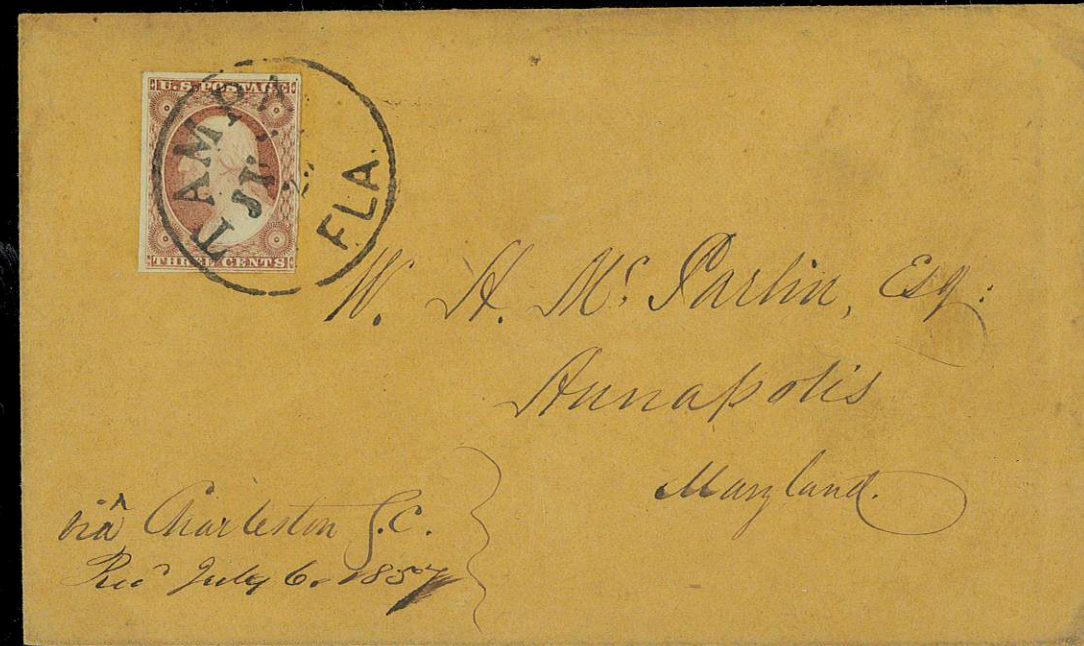 U.S. POSTAGE
THREE CENTS
TAMPA
FLA.
W. H. Mc Parlin, Esq:
Annapolis
Maryland.
viâ Charleston S.C.
Recd July 6. 1857